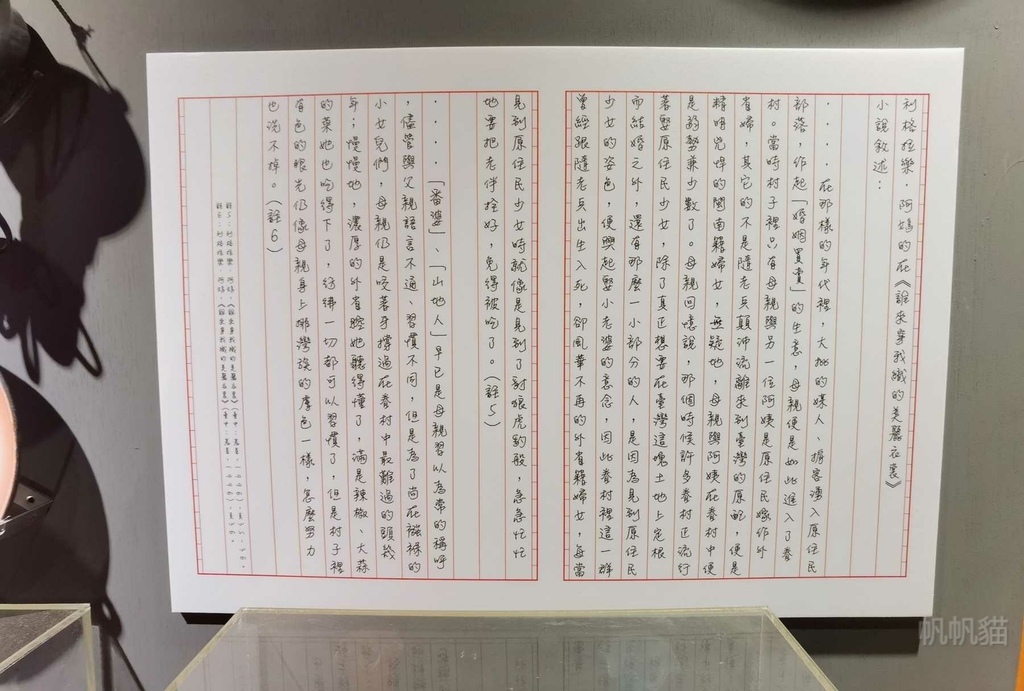 利格拉樂．阿𡠄的在《誰來穿我織的美麗衣裳》
小說敘述：
．．．．在那樣的年代裡，大批的媒人、掮客湧入原住民
部落，作起「婚姻買賣」的生意，母親便是如此進入了眷
村。當時村子裡只有母親與另一位阿姨是原住民嫁作外
省婦，其它的不是隨老兵顛沛流離來到臺灣的原配，便是
精明兇悍的閩南籍婦女，無疑地，母親與阿姨在眷村中便
是弱勢兼少數了。母親回憶說，那個時候許多眷村正流行
著娶原住民少女，除了真正想要在臺灣這塊土地上定根
而結婚之外，還有那麼一小部分的人，是因為見到原住民
少女的姿色，便興起娶小老婆的意念，因此眷村裡這一群
曾經跟隨老兵出生入死，卻風華不再的外省籍婦女，每當
見到原住民少女時就像是見到了豺狼虎豹般，急急忙忙
地要把老伴拴好，免得被吃了。（註5）
．．．．「番婆」、「山地人」早已是母親習以為常的稱呼
，儘管與父親語言不通、習慣不同，但是為了尚在襁褓的
小女兒們，母親仍是咬著牙撐過在眷村中最難過的頭幾
年；慢慢地，濃厚的外省腔她聽得懂了，滿是辣椒、大蒜
的菜她也吃得下了，彷彿一切都可以習慣了，但是村子裡
有色的眼光仍像母親身上排灣族的膚色一樣，怎麼努力
也洗不掉。（註6）
註5：利格拉樂．阿𡠄，《誰來穿我織的美麗衣裳》（臺中：晨星，1996），頁35-36。
註6：利格拉樂．阿𡠄，《誰來穿我織的美麗衣裳》（臺中：晨星，1996），頁36。
帆帆貓